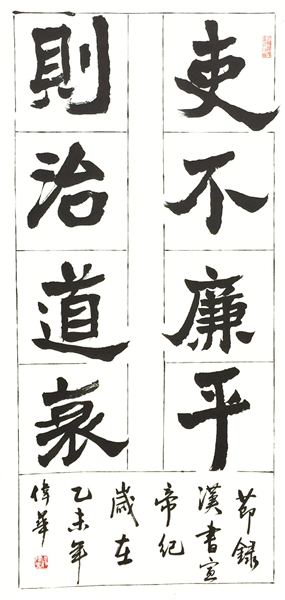 吏不廉平
則治道衰
節錄
漢書宣
帝紀
歲在
乙未年
偉華